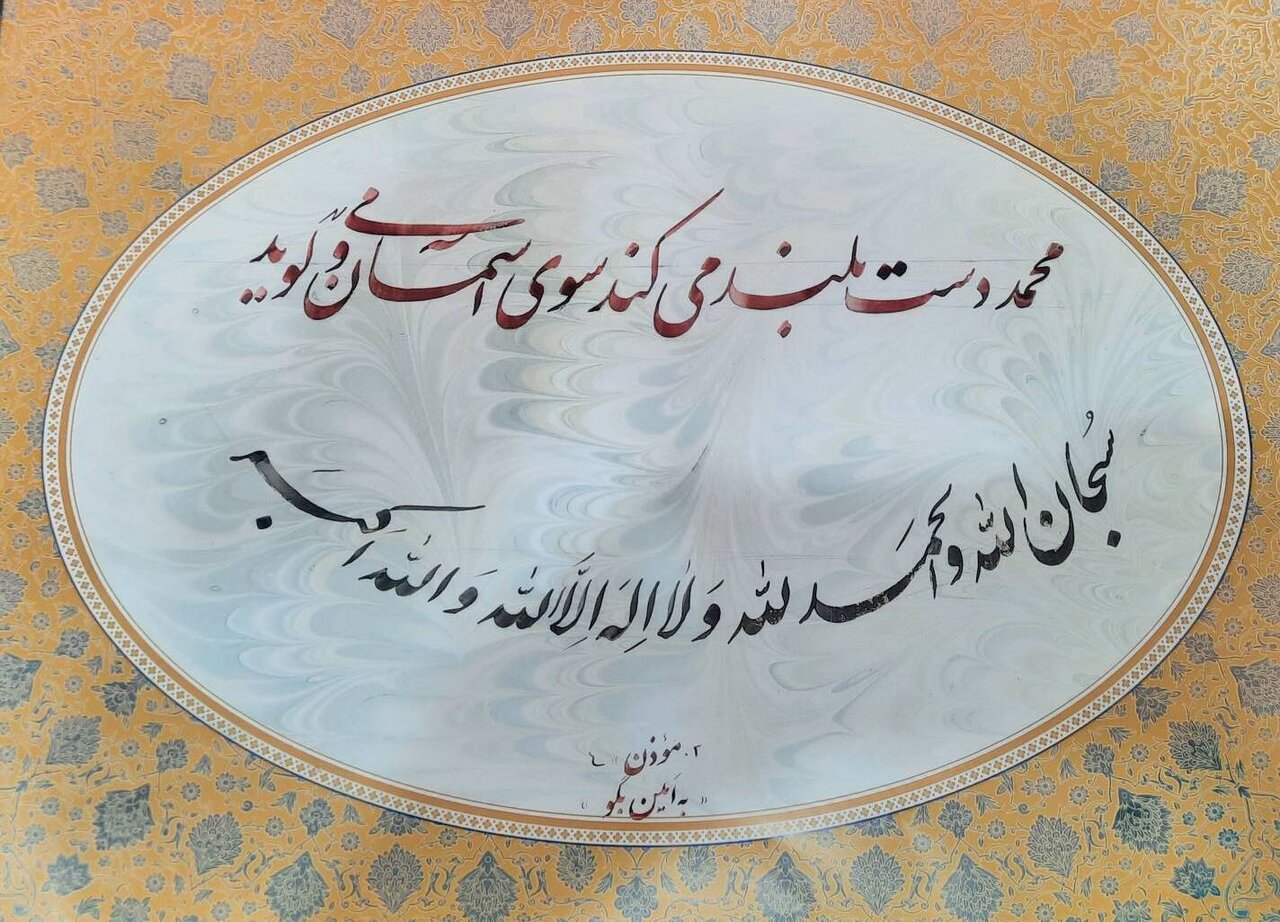 محمد دست بلند می کند سوی آسمان و می گوید
سُبحان الله والحمد لله وَلا اِلهَ اِلَّا الله وَالله اکبَر
مؤذن
« به امین نکو »